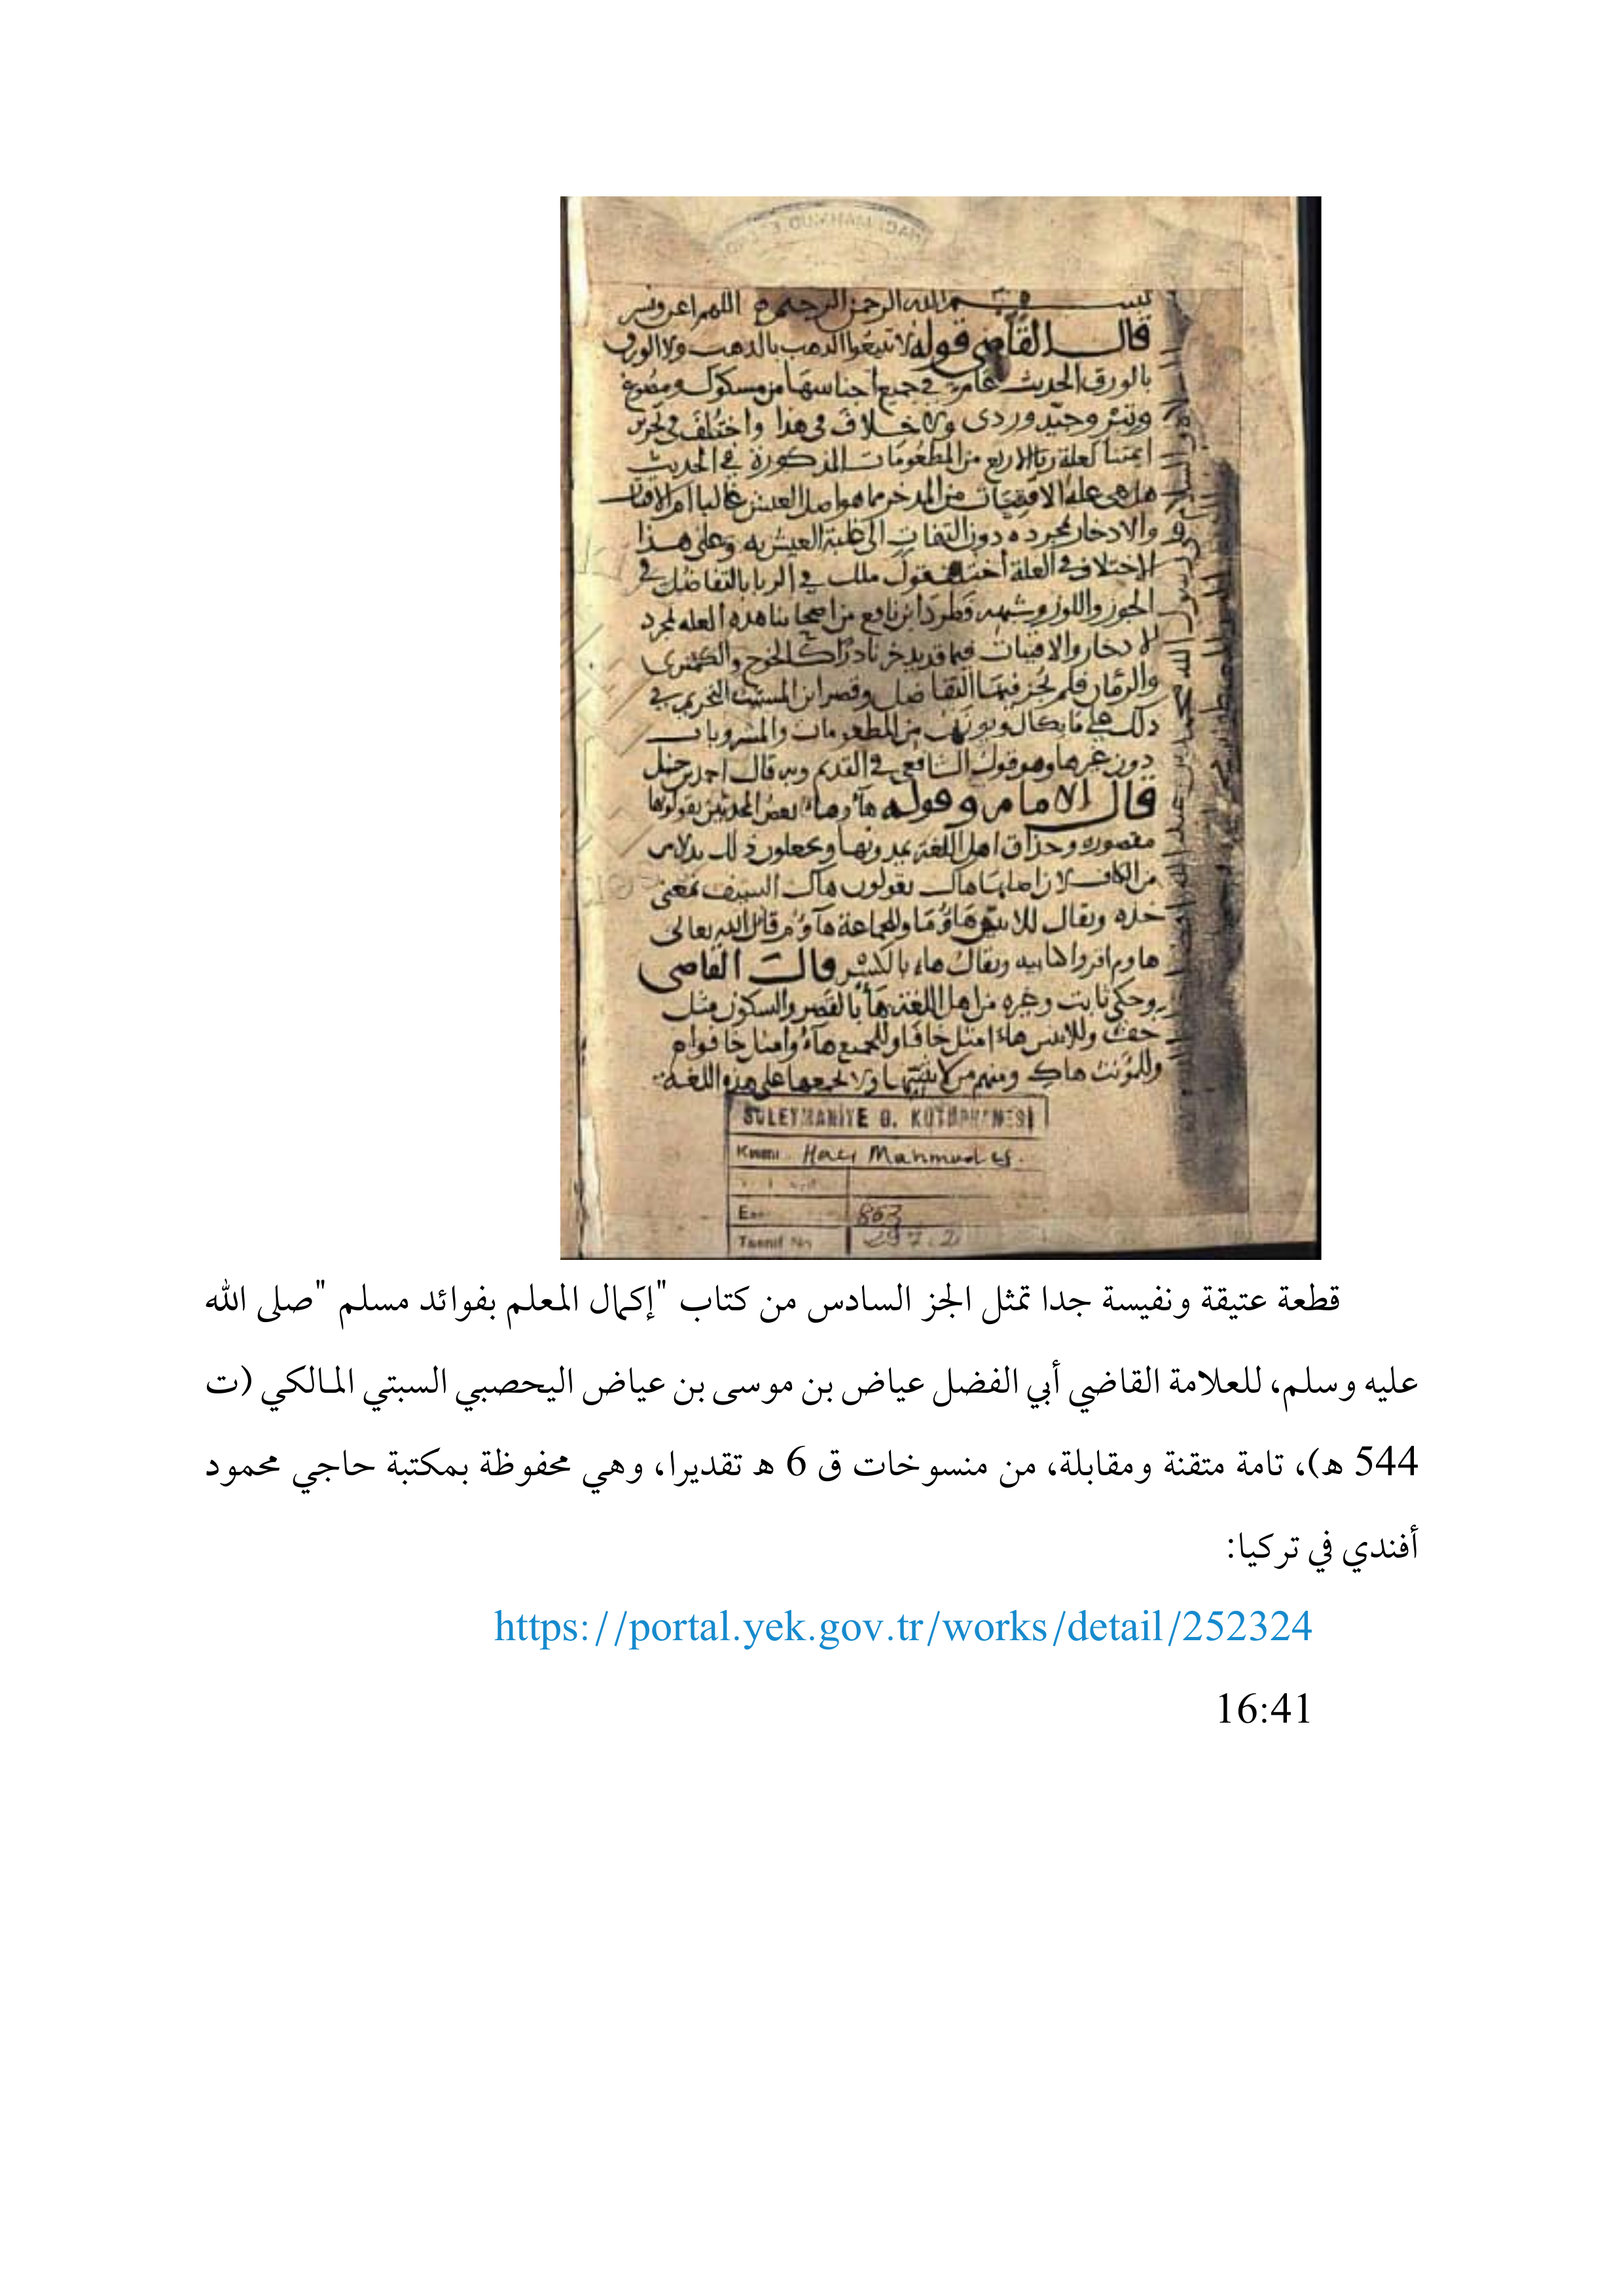 HACI MAHMUD E
بسم الله الرحمن الرحيم اللهم اعن ويسر
قال القاضي قوله لا تبيعوا الذهب بالذهب ولا الورق
بالورق الحديث عام في جميع اجناسها من مسكوك ومصوغ
وتبر وجيد وردى ولا خلاف في هذا واختلف في تحرير
ايمتنا لعلة ربا الاربع من المطعومات المذكورة في الحديث
هل هي علة الاقتيات من المدخر مما هو اصل العيش غالبا ام الاقتيات
والادخار بمجرده دون التفات الى غلبة العيش به وعلى هذا
الاختلاف في العلة اختلف قول ملك في الربا بالتفاضل في
الجوز واللوز وشبهه فطرد ابن نافع من اصحابنا هذه العله لمجرد
الادخار والاقتيات فيما قد يدخر نادرا كالخوخ والكمثرى
والرمان فلم يجز فيها التفاضل وقصر ابن المسيب التحريم في
ذلك على ما يكال ويوزن من المطعومات والمشروبات
دون غيرها وهو قول الشافعي في القديم وبه قال احمد بن حنبل
قال الامام وقوله هاء وهاء بعض المحدثين يقولونها
مقصوره وحذاق اهل اللغة يمدونها ويجعلون ذلك بدلا من
من الكاف لان اصلها هاك يقولون هاك السيف بمعنى
خذه ويقال للاثنين هاؤما وللجماعة هاؤم قال الله تعالى
هاوم اقروا كتابيه ويقال هاء بالكسر قال القاضى
وحكى ثابت وغيره من اهل اللغة هأ بالقصر والسكون مثل
خف وللاثنين هاءا مثل خافا وللجميع هاءوا مثل خافوا
وللمؤنث هاك ومنهم من لا يثنيها ولا يجمعها على هذه اللغة
SÜLEYMANİYE G. KÜTÜPHANESİ
Kısmı Hacı Mahmud ef.
863
Tasnif No 297.2
قطعة عتيقة ونفيسة جدا تمثل الجز السادس من كتاب "إكمال المعلم بفوائد مسلم "صلى الله
عليه وسلم، للعلامة القاضي أبي الفضل عياض بن موسى بن عياض اليحصبي السبتي المالكي (ت
544 هـ)، تامة متقنة ومقابلة، من منسوخات ق 6 هـ تقديرا، وهي محفوظة بمكتبة حاجي محمود
أفندي في تركيا:
https://portal.yek.gov.tr/works/detail/252324
16:41